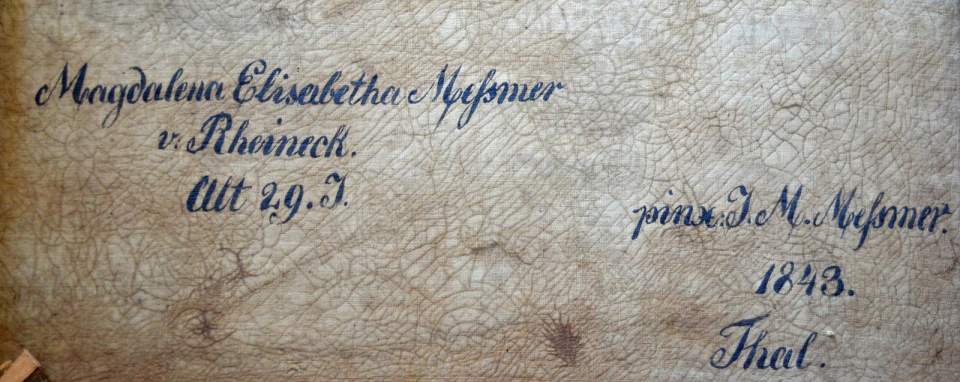 Magdalena Elisabetha Meſsmer
v: Rheineck.
Alt 29. J.
pinx: J. M. Meſsmer.
1843.
Thal.